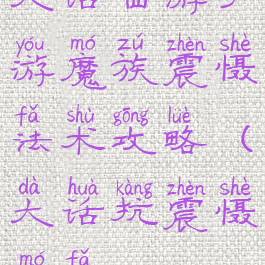 大话西游手
yóu mó zú zhèn shè
游魔族震慑
fǎ shù gōng lüè
法术攻略（
dà huà kàng zhèn shè
大话抗震慑
mó fǎ